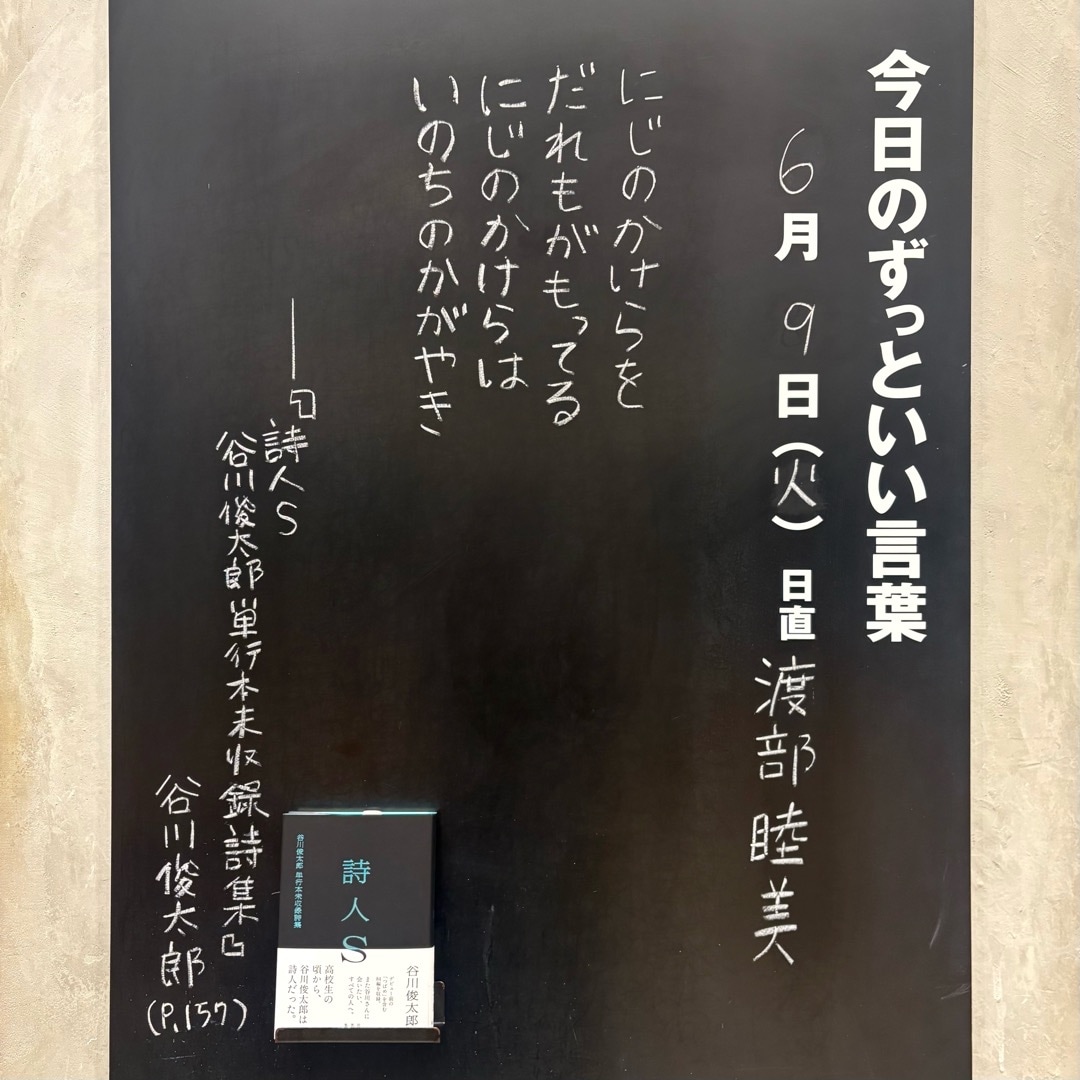 今日のずっといい言葉
6月9日(火) 日直 渡部睦美
にじのかけらを
だれもがもってる
にじのかけらは
いのちのかがやき
―『詩人S
谷川俊太郎単行本未収録詩集』
谷川俊太郎
(P.157)
谷川俊太郎 単行本未収録詩集
詩人S
谷川俊太郎
デビュー前の
まだ谷川さんに
会いたい、
すべての人へ。
高校生の
頃から、
谷川俊太郎は
詩人だった。